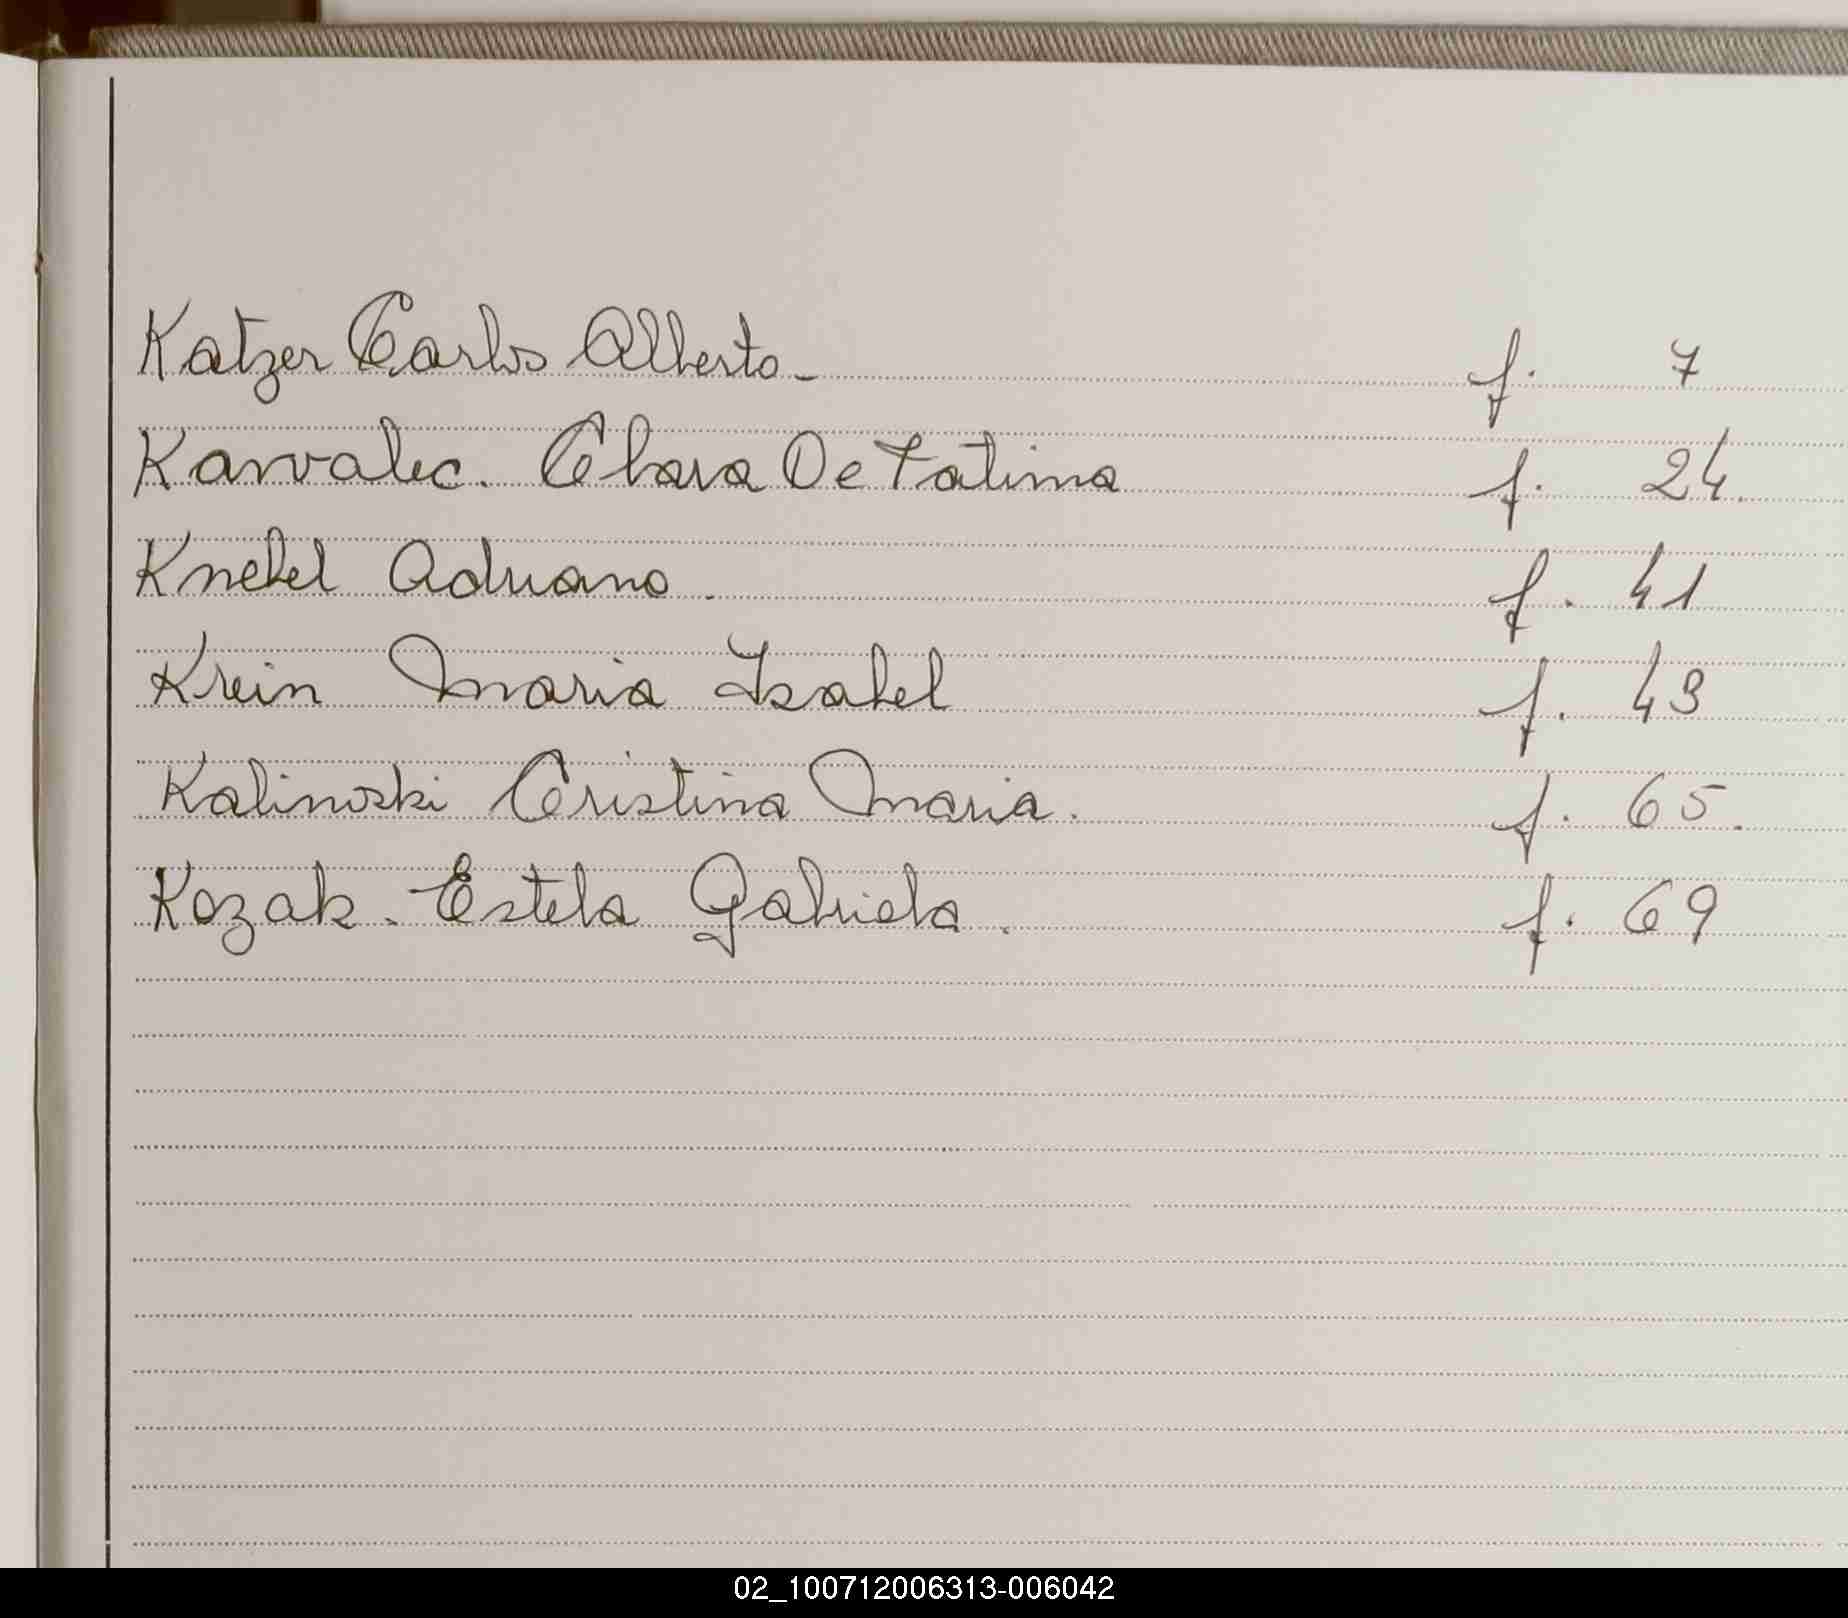 Katzer Carlos Alberto - f. 7
Karvalec. Clara De Fatima f. 24.
Knebel Adriano. f. 41
Krein Maria Isabel f. 43
Kalinoski Cristina Maria. f. 65.
Kozak. Estela Gabriela. f. 69
02_100712006313-006042